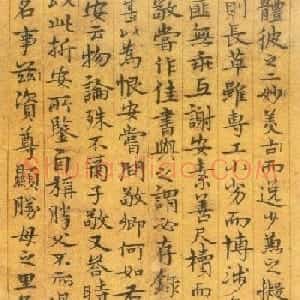 體彼之二妙美而逸少兼之擬
則長草雖專工小劣而博涉
匪無乖互謝安素善尺牘而
敬嘗作佳書與謂必存錄
甚以為恨安嘗問敬卿何如右
安云物論殊不爾子敬又答時
以此折安所鑒自稱勝父不亦
名事茲資尊顯勝母之里